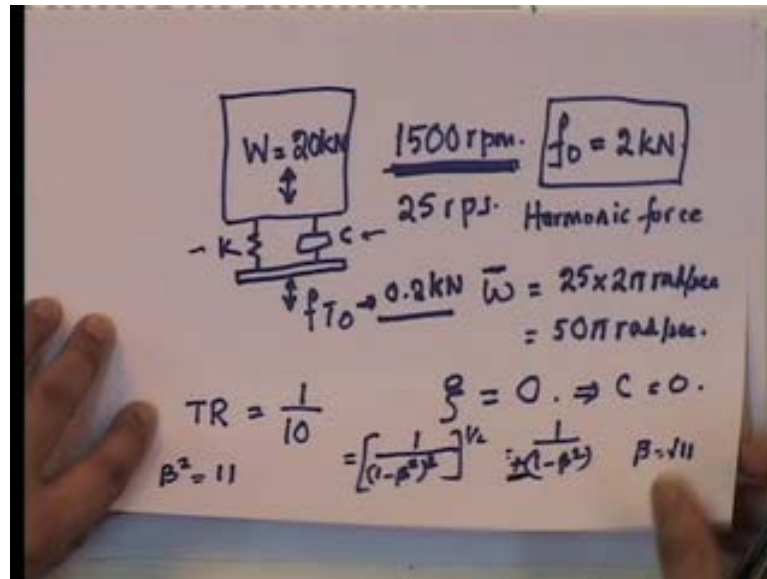 W = 20kN
1500 rpm.
f₀ = 2 kN
25 rps.
Harmonic force
K
C
fT₀ → 0.2kN
ω̄ = 25×2π rad/sec
= 50π rad/sec.
TR = 1/10
ξ = 0. ⇒ C = 0.
β² = 11
= [1/(1-β²)²]^1/2 = 1/±(1-β²)
β = √11